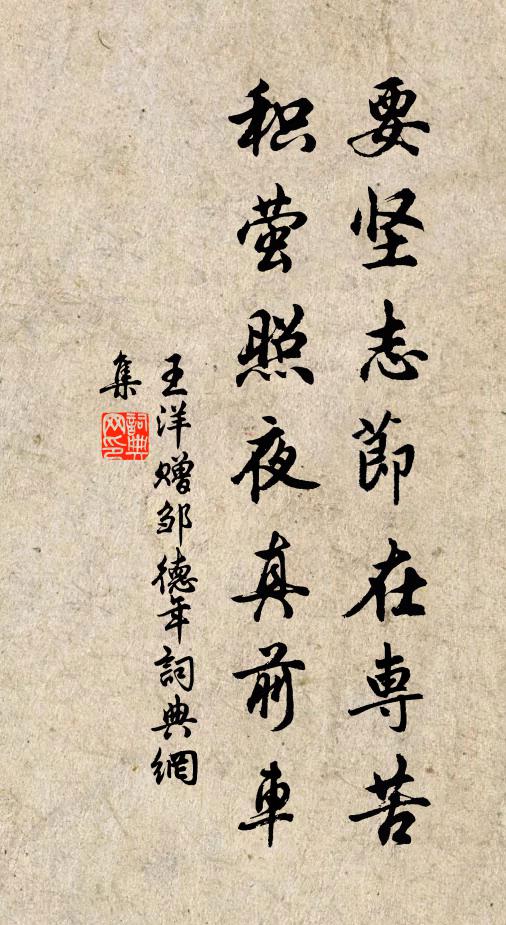 要坚志節在專苦
积萤照夜真前車
王洋赠邹德年詞典網
集
詞典网印